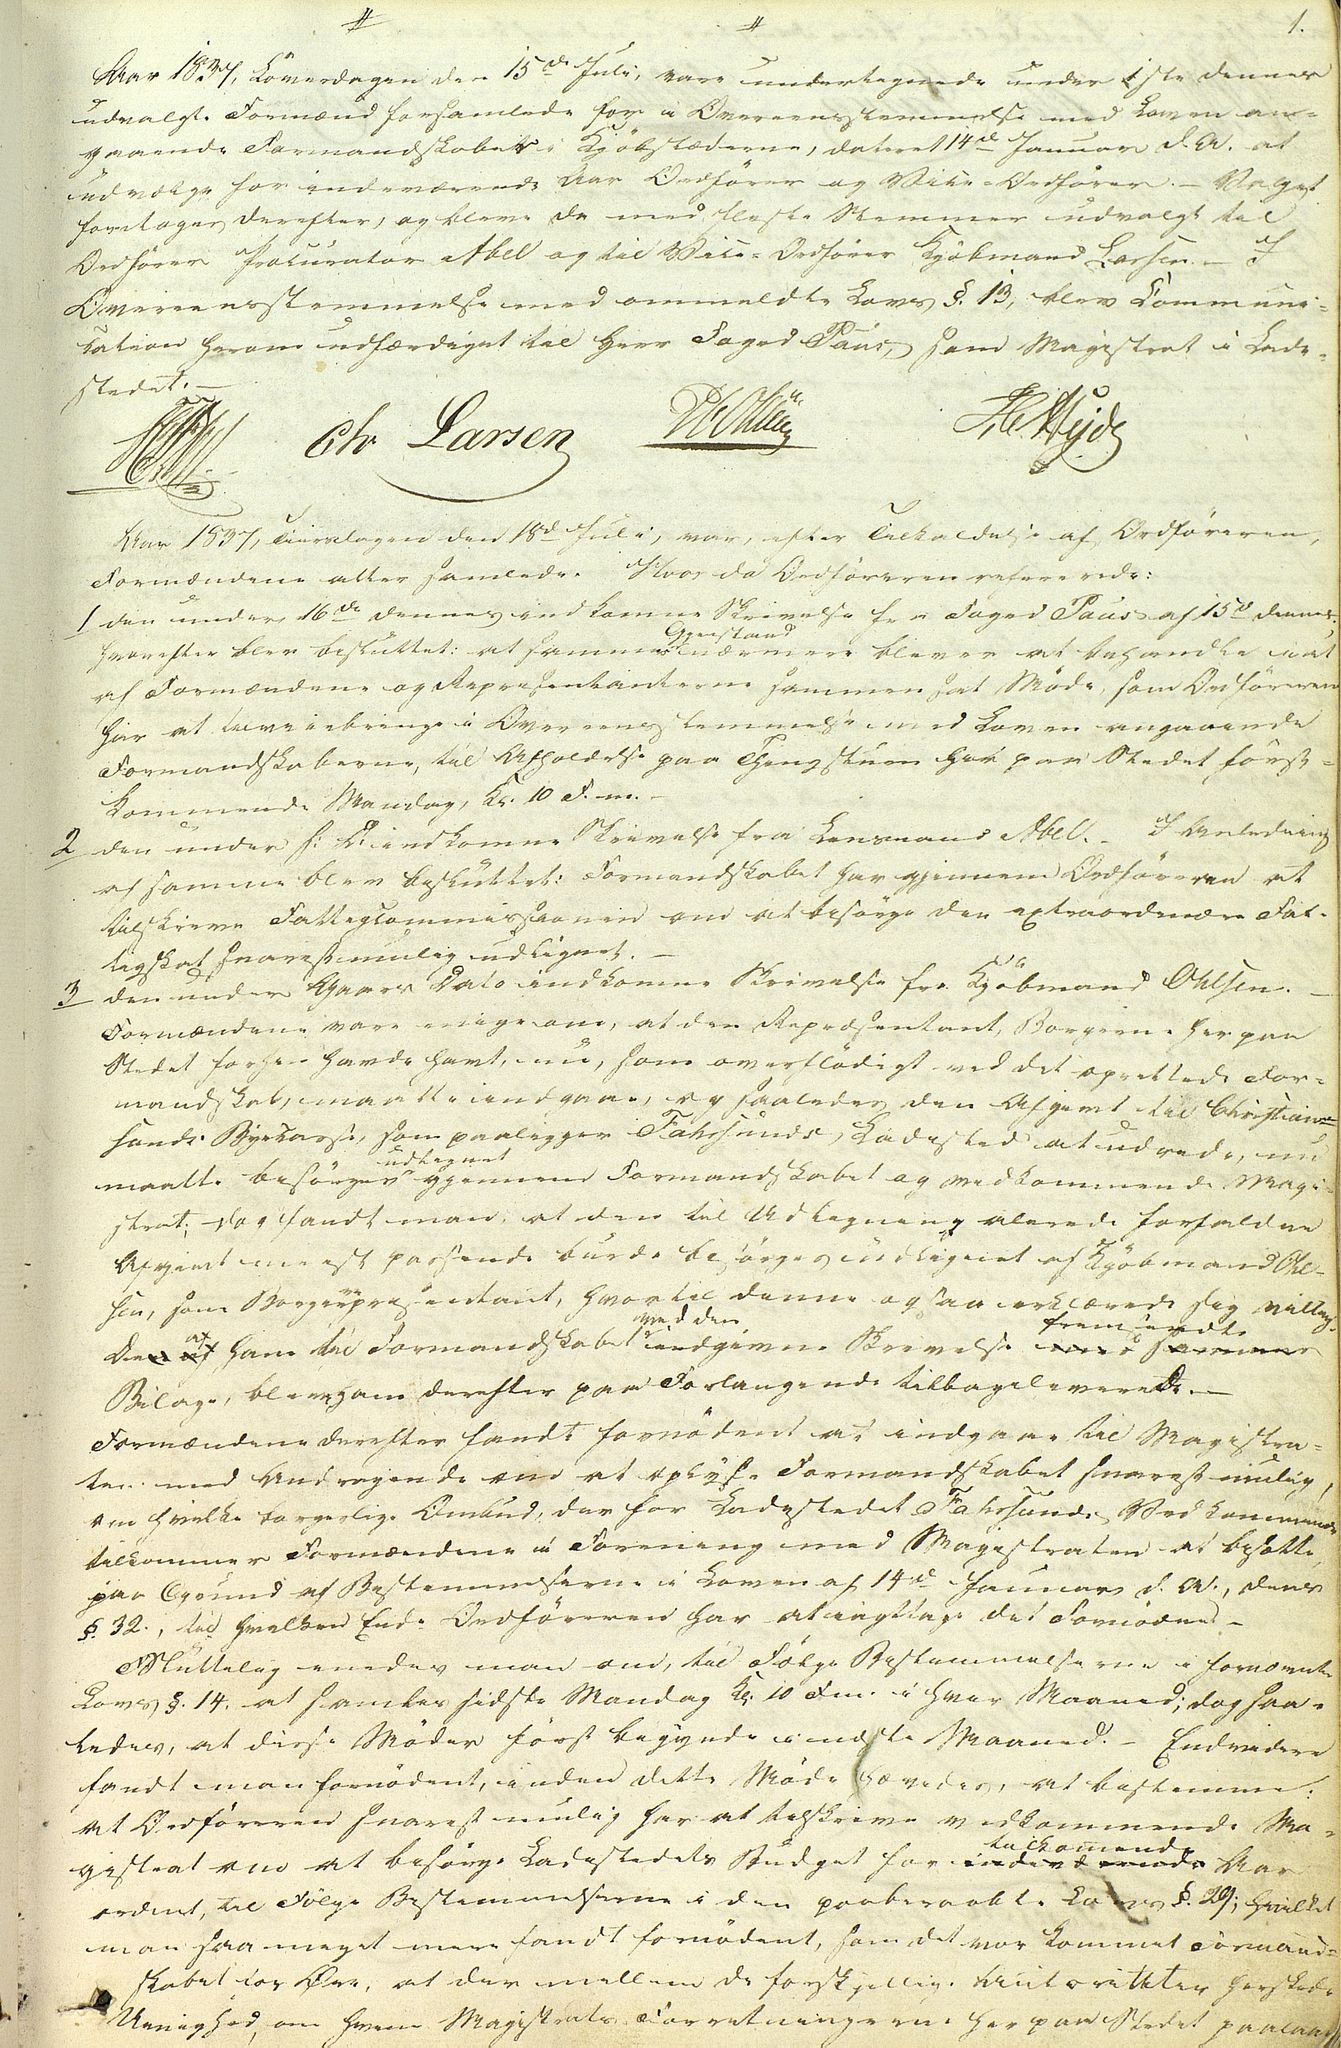 1.
Aar 1837, Löverdagen den 15de Juli, vare undertegnede under 1ste dennes
udvalgte Formænd forsamlede for i Overeensstemmelse med Loven an-
gaaende Formandskaber i Kjöbstæderne, dateret 14de Januar d. A. at
udvælge for indeværende Aar Ordförer og Vice-Ordförer. – Valget
foretoges derefter, og bleve da med fleste Stemmer udvalgt til
Ordförer Procurator Abel og til Vice-Ordförer Kjöbmand Larsen. – I
Overeensstemmelse med ommeldte Lovs §. 13, blev Communi-
cation herom udfærdiget til Herr Foged Paus, som Magistrat i Lade-
stedet. –
Chr Larsen
Aar 1837, Tirsdagen den 18de Juli, var, efter Tilholdelse af Ordföreren,
Formændene atter samlede. Hvor da Ordföreren refererede:
1 den under 16de dennes indkomne Skrivelse fra Foged Paus af 15de dennes,
Gjenstand
hvorefter blev besluttet: at sammes nærmere bliver at behandle i et
af Formændene og Repræsentanterne sammensat Möde, som Ordföreren
har at tilveiebringe i Overeensstemmelse med Loven angaaende
Formandskaberne, til Afholdelse paa Thingstuen her paa Stedet först-
kommende Mandag, Kl. 10 F. m. –
2 den under s. D. indkomne Skrivelse fra Lensmand Abel. – I Anledning
af samme blev besluttet: Formandskabet har gjennem Ordföreren at
tilskrive Fattigcommissionen om at besörge den extraordinære Fat-
tigskat snarest mulig udlignet. –
3 den under Gaars Dato indkomne Skrivelse fra Kjöbmand Ohlsen. –
Formændene vare enige om, at den Repræsentant, Borgerne her paa
Stedet forhen havde havt, nu, som overflödigt ved det oprettede For-
mandskab, maatte indgaae, og saaledes den Afgivt til Christian-
sands Byekasse, som paaligger Fahrsunds Ladested at udrede, nu
udlignet
maatte besörges gjennem Formandskabet og vedkommende Magi-
strat; dog fandt man, at den til Udligning alerede forfaldne
Afgivt meest passende burde besörges udlignet af Kjöbmand Ohl-
sen, som Borgerrepræsentant, hvortil denne ogsaa erklærede sig villig.
af med den fremsendte
Den af ham til Formandskabet indgivne Skrivelse med sammes
Bilage, blev ham derefter paa Forlangende tilbageleverede. –
Formændene derefter fandt fornödent at indgaae til Magistra-
ten med Andragende om at oplyse Formandskabet snarest mulig,
om hvilke borgerlige Ombud, der for Ladestedet Fahrsunds Vedkommende
tilkommer Formændene i Forening med Magistraten at besætte
paa Grund af Bestemmelserne i Loven af 14de Januar d. A., dens
§. 32., til hvilken Ende Ordföreren har at iagttage det Fornödne. –
Sluttelig enedes man om, til Fölge Bestemmelserne i fornævnte
Lovs §. 14. at samles sidste Mandag Kl. 10 Fm. i hver Maaned; dog saa-
ledes, at disse Möder först begynde i næste Maaned. – Endvidere
fandt man fornödent, inden dette Möde hævedes, at bestemme:
at Ordföreren snarest mulig har at tilskrive vedkommende Ma-
tilkomende
gistrat om at besörge Ladestedets Budget for indeværende Aar
ordnet, til Fölge Bestemmelserne i den paaberaabte Lovs §. 29; hvilket
man saa meget mere fandt fornödent, som det var kommet Formand-
skabet for Öre, at der mellem de forskjellige Autoriteter herskede
Uenighed, om hvem Magistrats Forretningerne her paa Stedet paalaae